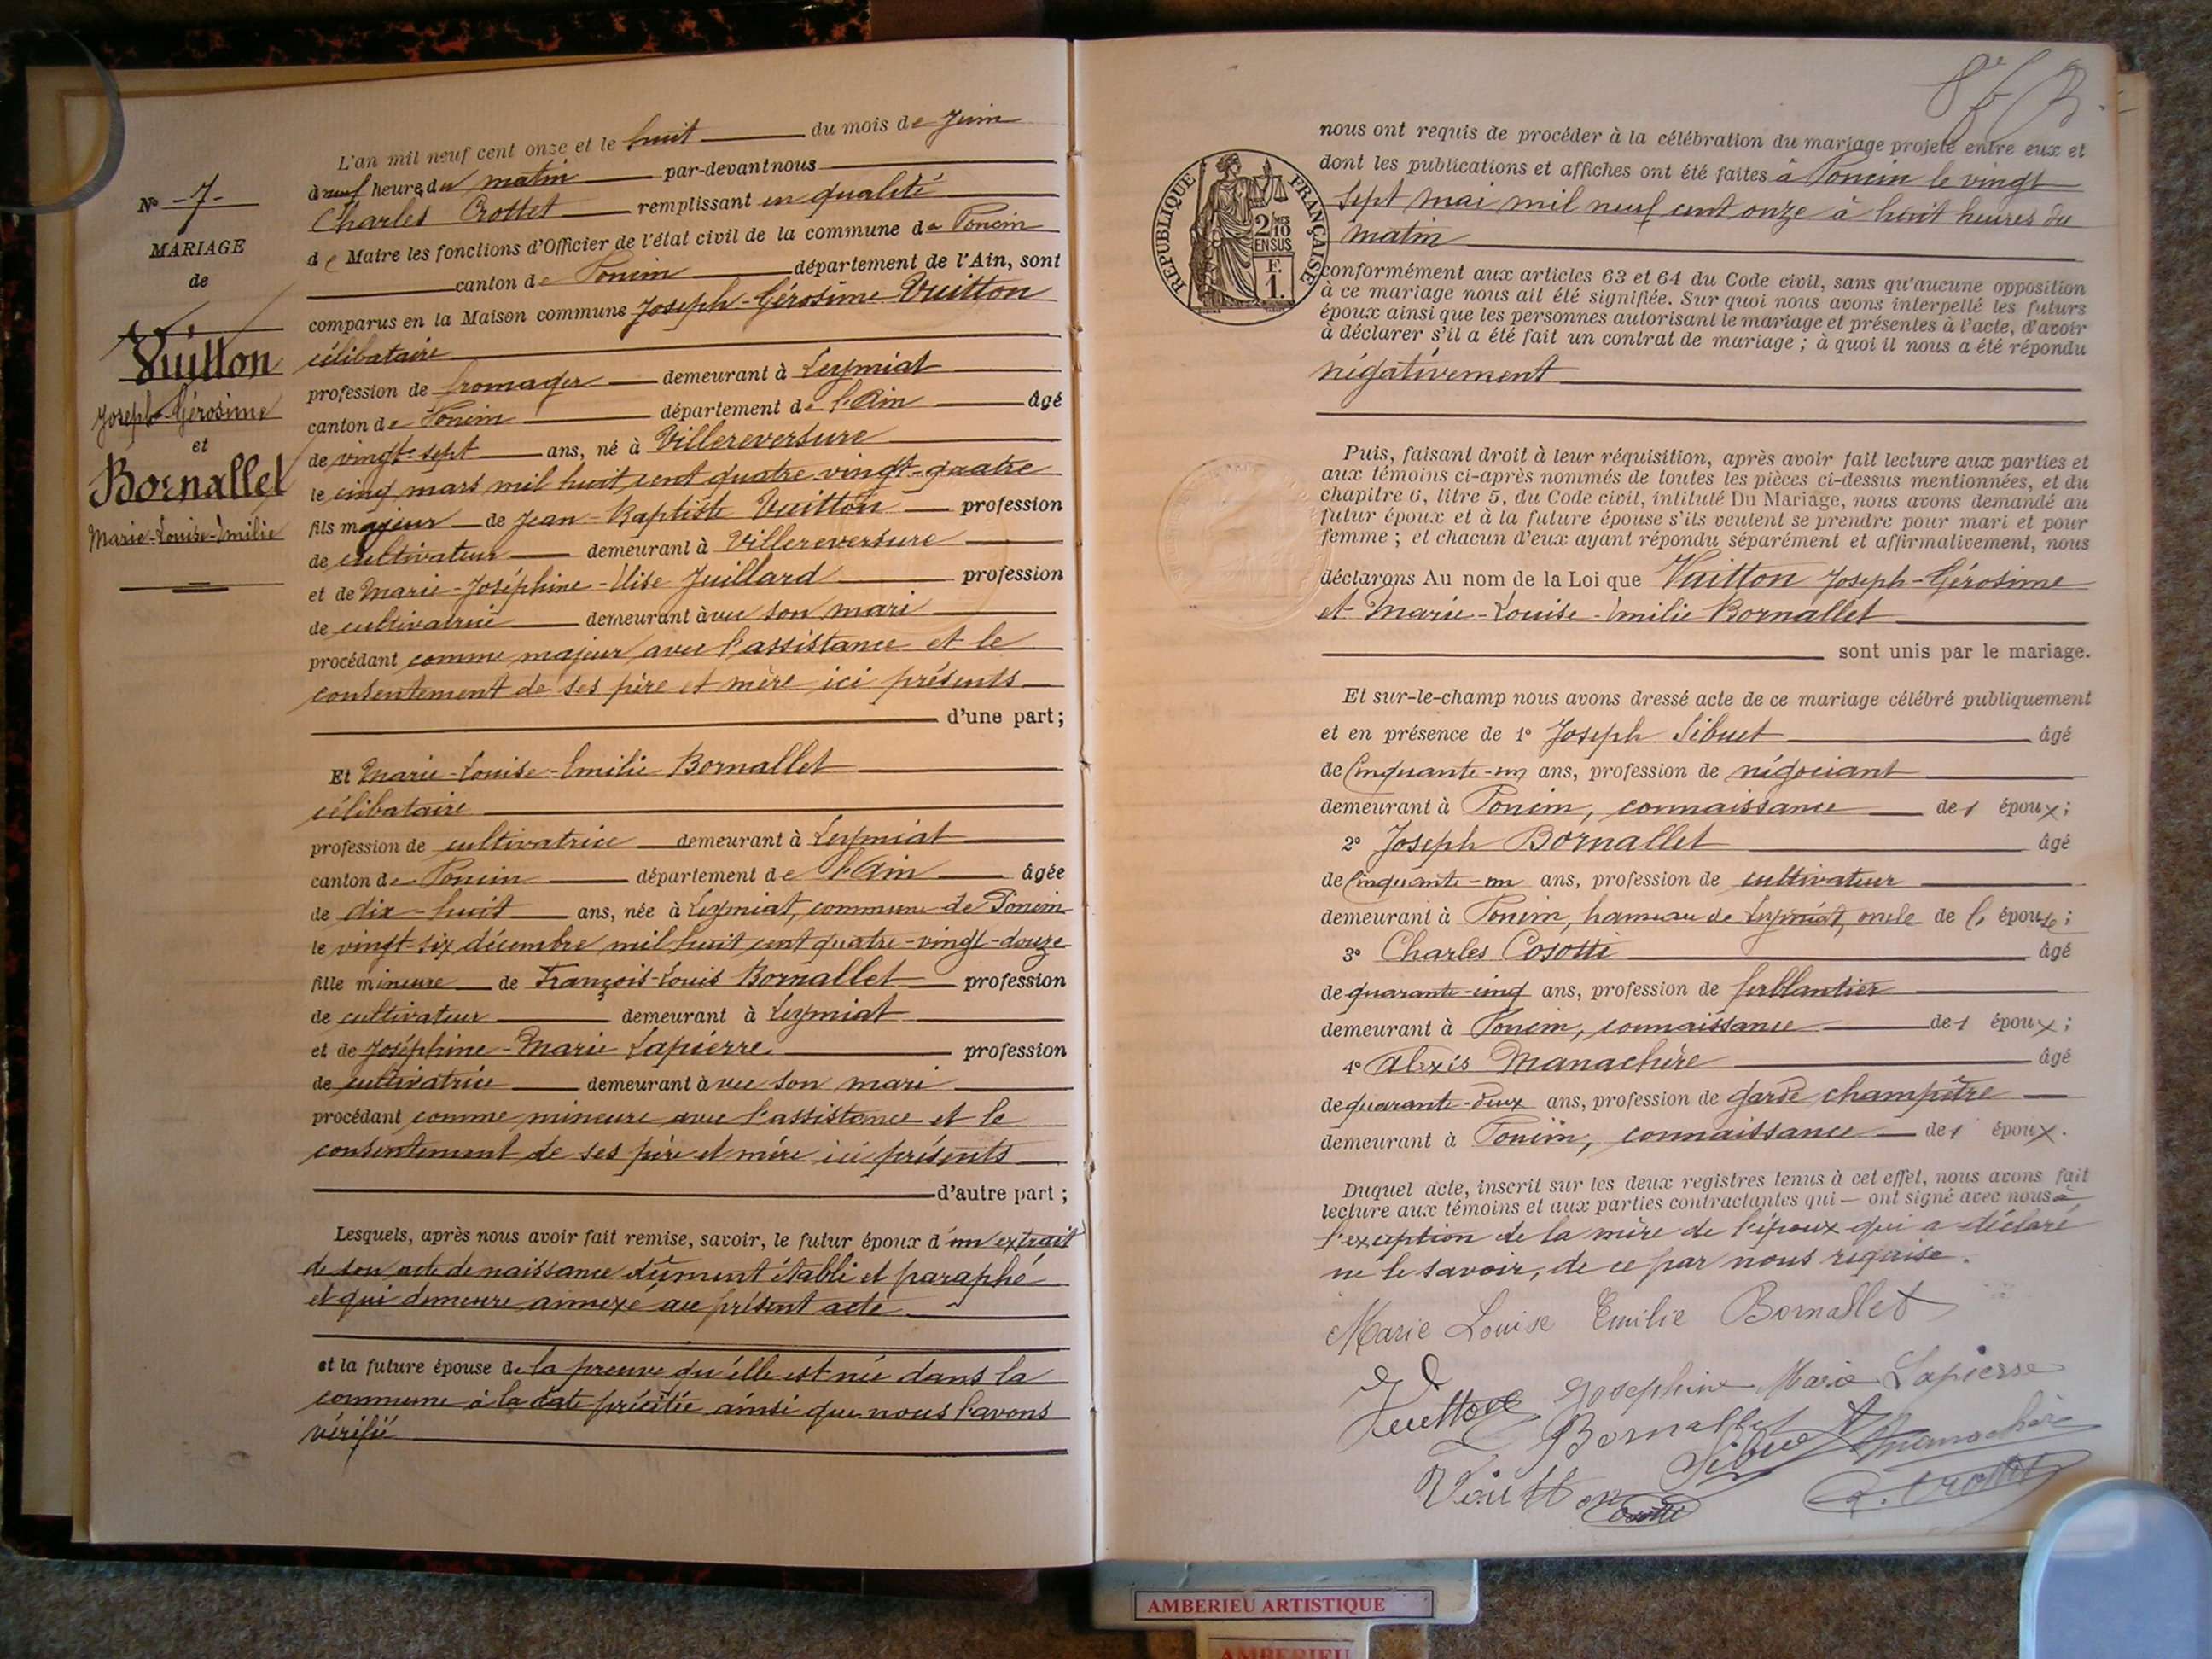 N° -7-
MARIAGE
de
Vuitton
Joseph-Gérosime
et
Bornallet
Marie-Louise-Emilie
L'an mil neuf cent onze et le huit du mois de Juin
à neuf heures du matin par-devant nous
Charles Crottet remplissant en qualité
de Maire les fonctions d'Officier de l'état civil de la commune de Poncin
canton de Poncin département de l'Ain, sont
comparus en la Maison commune Joseph-Gérosime Vuitton
célibataire
profession de fromager demeurant à Leymiat
canton de Poncin département de l'Ain âgé
de vingt-sept ans, né à Villereversure
le cinq mars mil huit cent quatre vingt-quatre
fils majeur de Jean-Baptiste Vuitton profession
de cultivateur demeurant à Villereversure
et de Marie-Joséphine-Elise Juillard profession
de cultivatrice demeurant avec son mari
procédant comme majeur avec l'assistance et le
consentement de ses père et mère ici présents
d'une part;
Et Marie-Louise-Emilie Bornallet
célibataire
profession de cultivatrice demeurant à Leymiat
canton de Poncin département de l'Ain âgée
de dix-huit ans, née à Leymiat, commune de Poncin
le vingt-six décembre mil huit cent quatre-vingt-douze
fille mineure de François-Louis Bornallet profession
de cultivateur demeurant à Leymiat
et de Joséphine-Marie Lapierre profession
de cultivatrice demeurant avec son mari
procédant comme mineure avec l'assistance et le
consentement de ses père et mère ici présents
d'autre part;
Lesquels, après nous avoir fait remise, savoir, le futur époux d'un extrait
de son acte de naissance dûment établi et paraphé
et qui demeure annexé au présent acte
et la future épouse de la preuve qu'elle est née dans la
commune à la date précitée ainsi que nous l'avons
vérifié
RÉPUBLIQUE FRANÇAISE
2/10 EN SUS
F. 1.
nous ont requis de procéder à la célébration du mariage projeté entre eux et
dont les publications et affiches ont été faites à Poncin le vingt
sept mai mil neuf cent onze à huit heures du
matin
conformément aux articles 63 et 64 du Code civil, sans qu'aucune opposition
à ce mariage nous ait été signifiée. Sur quoi nous avons interpellé les futurs
époux ainsi que les personnes autorisant le mariage et présentes à l'acte, d'avoir
à déclarer s'il a été fait un contrat de mariage; à quoi il nous a été répondu
négativement
Puis, faisant droit à leur réquisition, après avoir fait lecture aux parties et
aux témoins ci-après nommés de toutes les pièces ci-dessus mentionnées, et du
chapitre 6, titre 5, du Code civil, intitulé Du Mariage, nous avons demandé au
futur époux et à la future épouse s'ils veulent se prendre pour mari et pour
femme; et chacun d'eux ayant répondu séparément et affirmativement, nous
déclarons Au nom de la Loi que Vuitton Joseph-Gérosime
et Marie-Louise-Emilie Bornallet
sont unis par le mariage.
Et sur-le-champ nous avons dressé acte de ce mariage célébré publiquement
et en présence de 1° Joseph Sibuet âgé
de Cinquante-un ans, profession de négociant
demeurant à Poncin, connaissance de l'époux;
2° Joseph Bornallet âgé
de Cinquante-un ans, profession de cultivateur
demeurant à Poncin, hameau de Leymiat, oncle de l'épouse;
3° Charles Cosotti âgé
de quarante-cinq ans, profession de ferblantier
demeurant à Poncin, connaissance de l'époux;
4° Alexis Manachère âgé
de quarante-deux ans, profession de garde champêtre
demeurant à Poncin, connaissance de l'époux.
Duquel acte, inscrit sur les deux registres tenus à cet effet, nous avons fait
lecture aux témoins et aux parties contractantes qui — ont signé avec nous à
l'exception de la mère de l'époux qui a déclaré
ne le savoir, de ce par nous requise.
Marie Louise Emilie Bornallet
Vuitton Josephine Marie Lapierre
Bornallet Sibuet Manachère
Vuitton Cosotti C. Crottet
AMBERIEU ARTISTIQUE
AMBERIEU